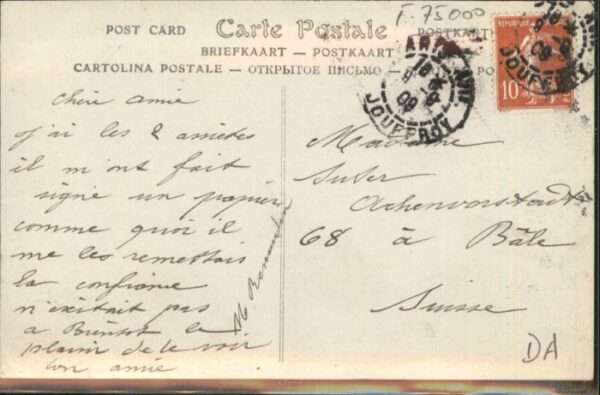 F. 75000
POST CARD Carte Postale POSTKART
BRIEFKAART - POSTKAART
CARTOLINA POSTALE - ОТКРЫТОЕ ПИСЬМО - PO
REPUBLIQUE
10
PARIS
JOUFFROY
09
chère amie
j'ai les 2 assiettes
il m'ont fait
signé un papier
comme quoi il
me les remettais
la confiance
n'existait pas
a Bientot le
plaisir de te voir
ton amie
M
Madame
Suter
68 à Bâle
Suisse
DA